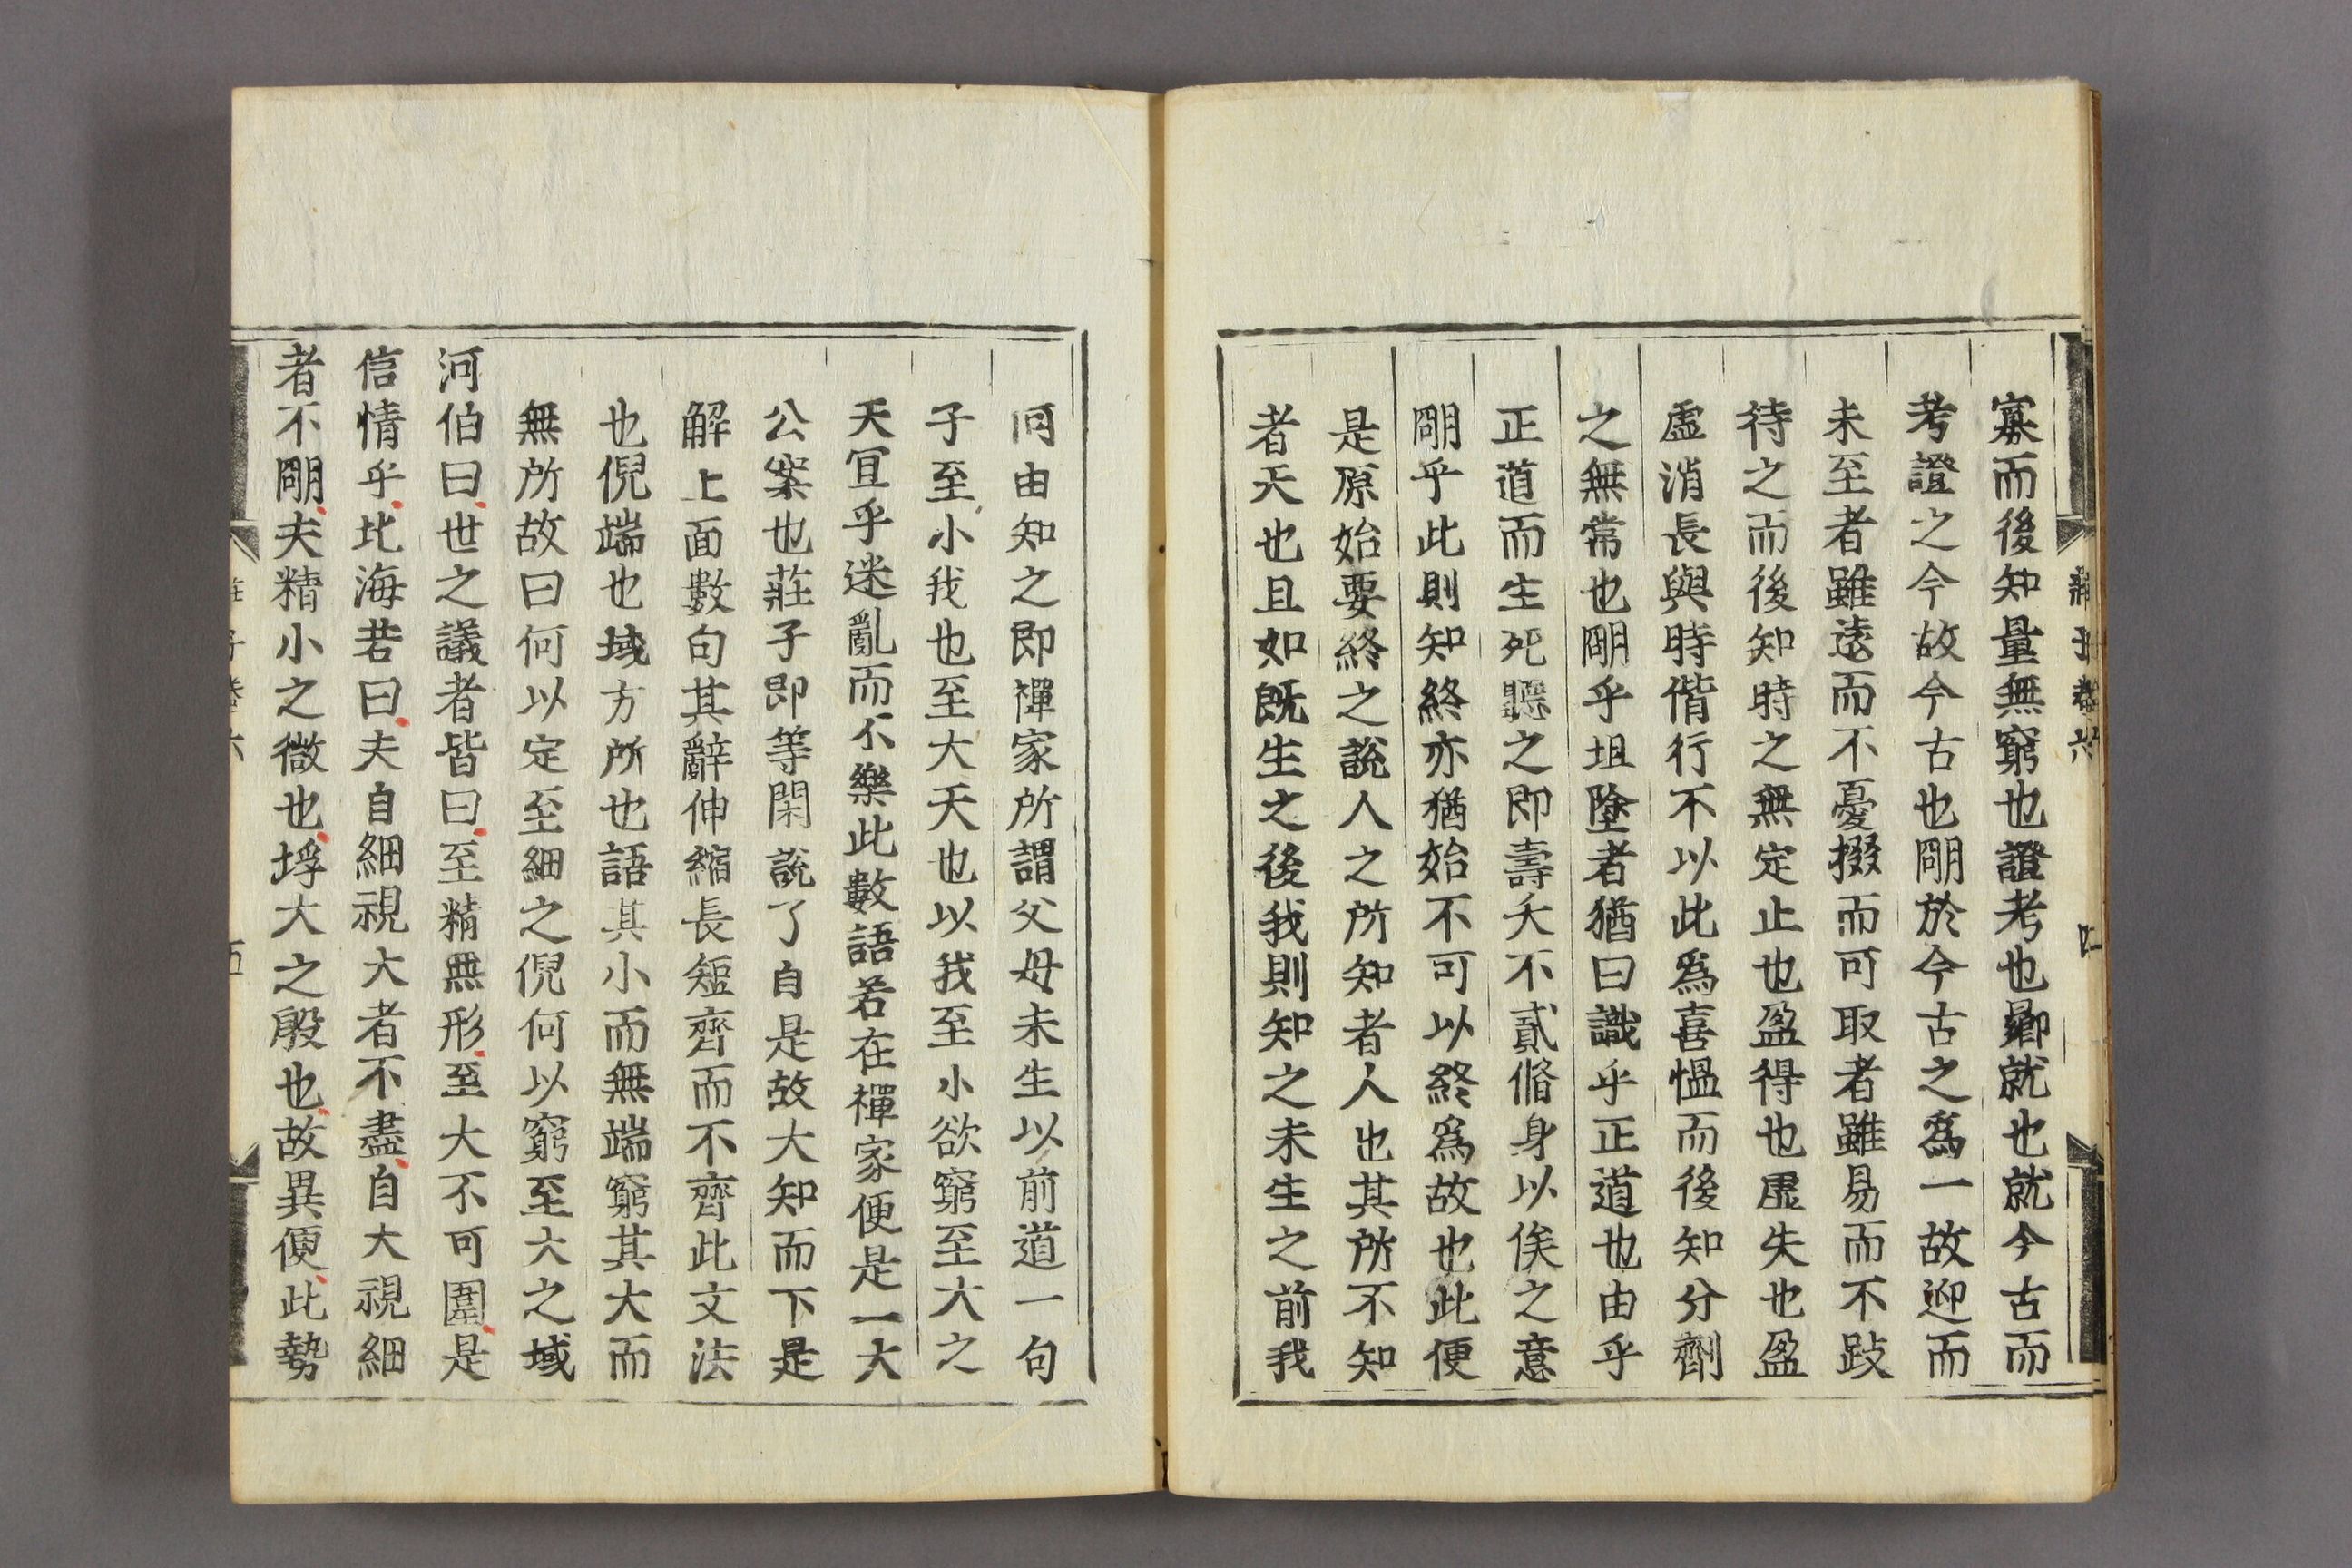 莊子卷六
四
寡而後知量無窮也證考也曏就也就今古而
考證之今故今古也朙於今古之爲一故迎而
未至者雖遠而不憂掇而可取者雖易而不跂
待之而後知時之無定止也盈得也虛失也盈
虛消長與時偕行不以此爲喜慍而後知分劑
之無常也朙乎坦墬者猶曰識乎正道也由乎
正道而生死聽之即壽夭不貳脩身以俟之意
朙乎此則知終亦猶始不可以終爲故也此便
是原始要終之說人之所知者人也其所不知
者天也且如旣生之後我則知之未生之前我
何由知之即禪家所謂父母未生以前道一句
子至小我也至大天也以我至小欲窮至大之
天宜乎迷亂而不樂此數語若在禪家便是一大
公案也莊子即等閑說了自是故大知而下是
解上面數句其辭伸縮長短齊而不齊此文法
也倪端也域方所也語其小而無端窮其大而
無所故曰何以定至細之倪何以窮至大之域
河伯曰世之議者皆曰至精無形至大不可圍是
信情乎北海若曰夫自細視大者不盡自大視細
者不朙夫精小之微也垺大之殷也故異便此勢
莊子卷六
五